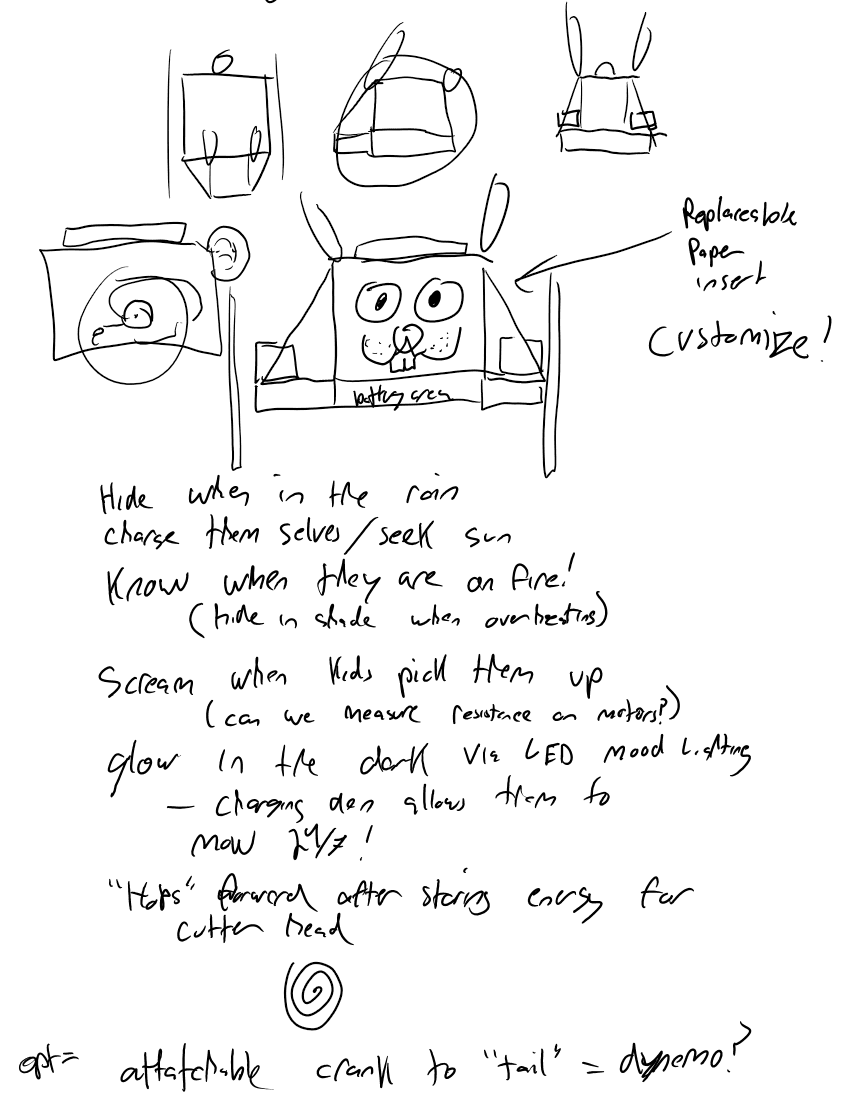 Replaceable
Paper
insert
Customize!
battery area
Hide when in the rain
charge them selves/seek sun
Know when they are on fire!
(hide in shade when overheating)
Scream when kids pick them up
(can we measure resistance on motors?)
glow in the dark via LED mood lighting
- charging den allows them to
mow 24/7!
"Hops" forward after storing energy for
cutter head
opt= attatchable crank to "tail" = dynamo?